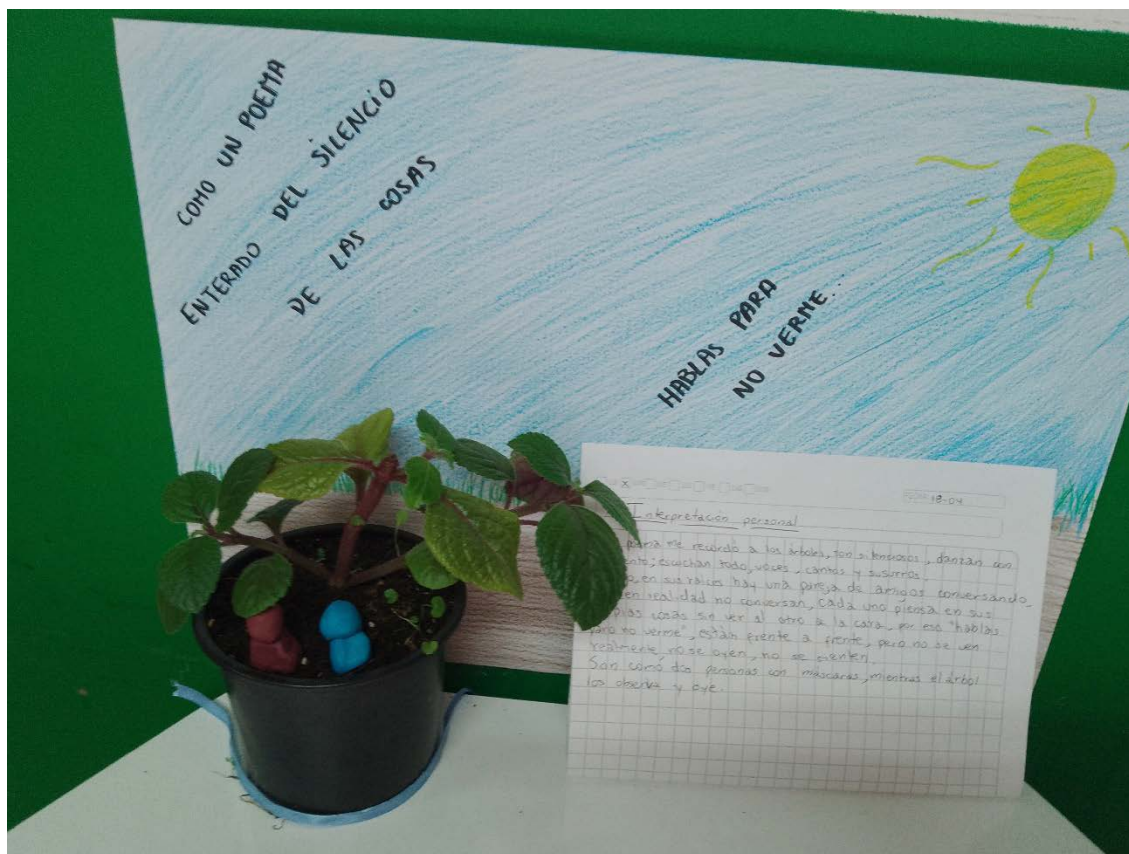 COMO UN POEMA
ENTERADO DEL SILENCIO
DE LAS COSAS
HABLAS PARA
NO VERME..
x
18-04
Interpretación personal
me recordó a los árboles, son silenciosos, danzan con
escuchan todo, voces, cantos y susurros.
en sus raíces hay una pareja de amigos conversando,
en realidad no conversan, cada uno piensa en sus
cosas sin ver al otro a la cara, por eso "hablas
para no verme", están frente a frente, pero no se ven
realmente no se oyen, no se sienten.
Son como dos personas con máscaras, mientras el árbol
los observa y oye.